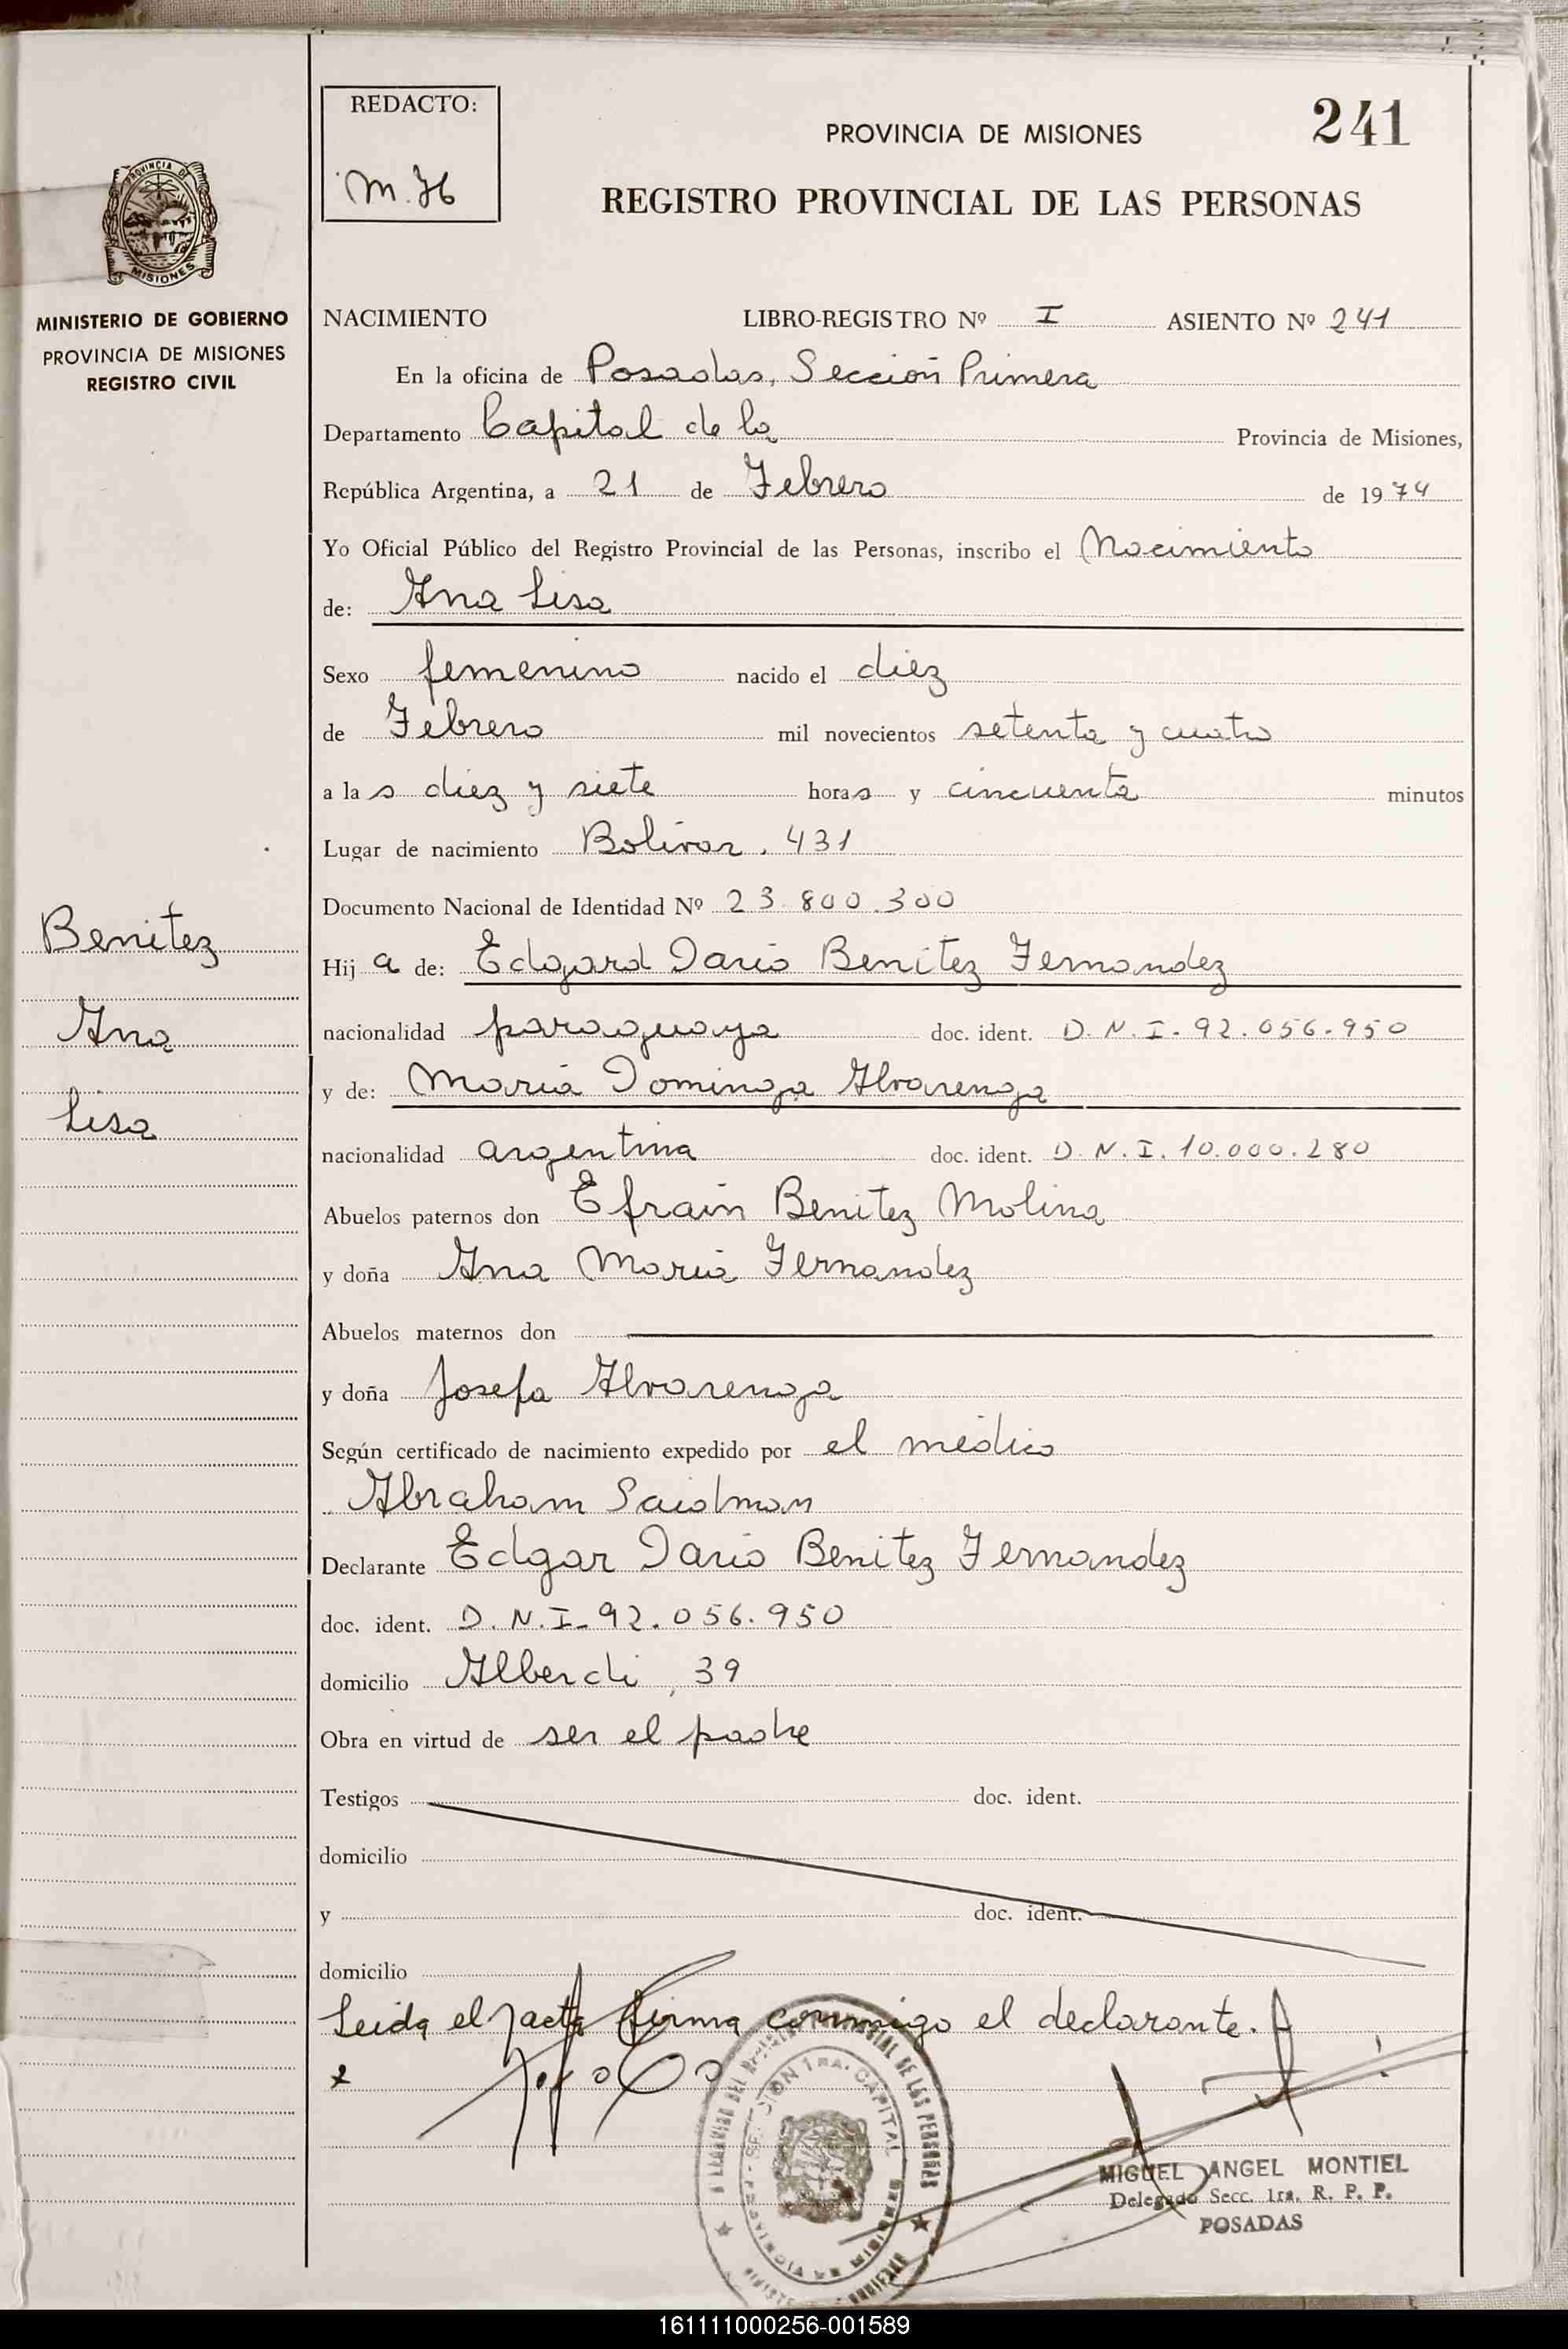 REDACTO:
M. H
241
PROVINCIA DE MISIONES
REGISTRO PROVINCIAL DE LAS PERSONAS
PROVINCIA DE
MISIONES
MINISTERIO DE GOBIERNO
PROVINCIA DE MISIONES
REGISTRO CIVIL
NACIMIENTO LIBRO-REGISTRO Nº I ASIENTO Nº 241
En la oficina de Posadas, Sección Primera
Departamento Capital de la Provincia de Misiones,
República Argentina, a 21 de Febrero de 1974
Yo Oficial Público del Registro Provincial de las Personas, inscribo el Nacimiento
de: Ana Lisa
Sexo femenino nacido el diez
de Febrero mil novecientos setenta y cuatro
a las diez y siete horas y cincuenta minutos
Lugar de nacimiento Bolivar. 431
Documento Nacional de Identidad Nº 23.800.300
Benitez
Ana
Lisa
Hija de: Edgard Dario Benitez Fernandez
nacionalidad paraguaya doc. ident. D.N.I. 92.056.950
y de: Maria Dominga Alvarenga
nacionalidad argentina doc. ident. D.N.I. 10.000.280
Abuelos paternos don Efrain Benitez Molina
y doña Ana Maria Fernandez
Abuelos maternos don
y doña Josefa Alvarenga
Según certificado de nacimiento expedido por el médico
Abraham Saidman
Declarante Edgar Dario Benitez Fernandez
doc. ident. D.N.I. 92.056.950
domicilio Alberdi, 39
Obra en virtud de ser el padre
Testigos doc. ident.
domicilio
y doc. ident.
domicilio
Leida el acta firma conmigo el declarante.
SECCION 1ra. CAPITAL
PROVINCIA DE MISIONES
MIGUEL ANGEL MONTIEL
Delegado Secc. 1ra. R. P. P.
POSADAS
161111000256-001589